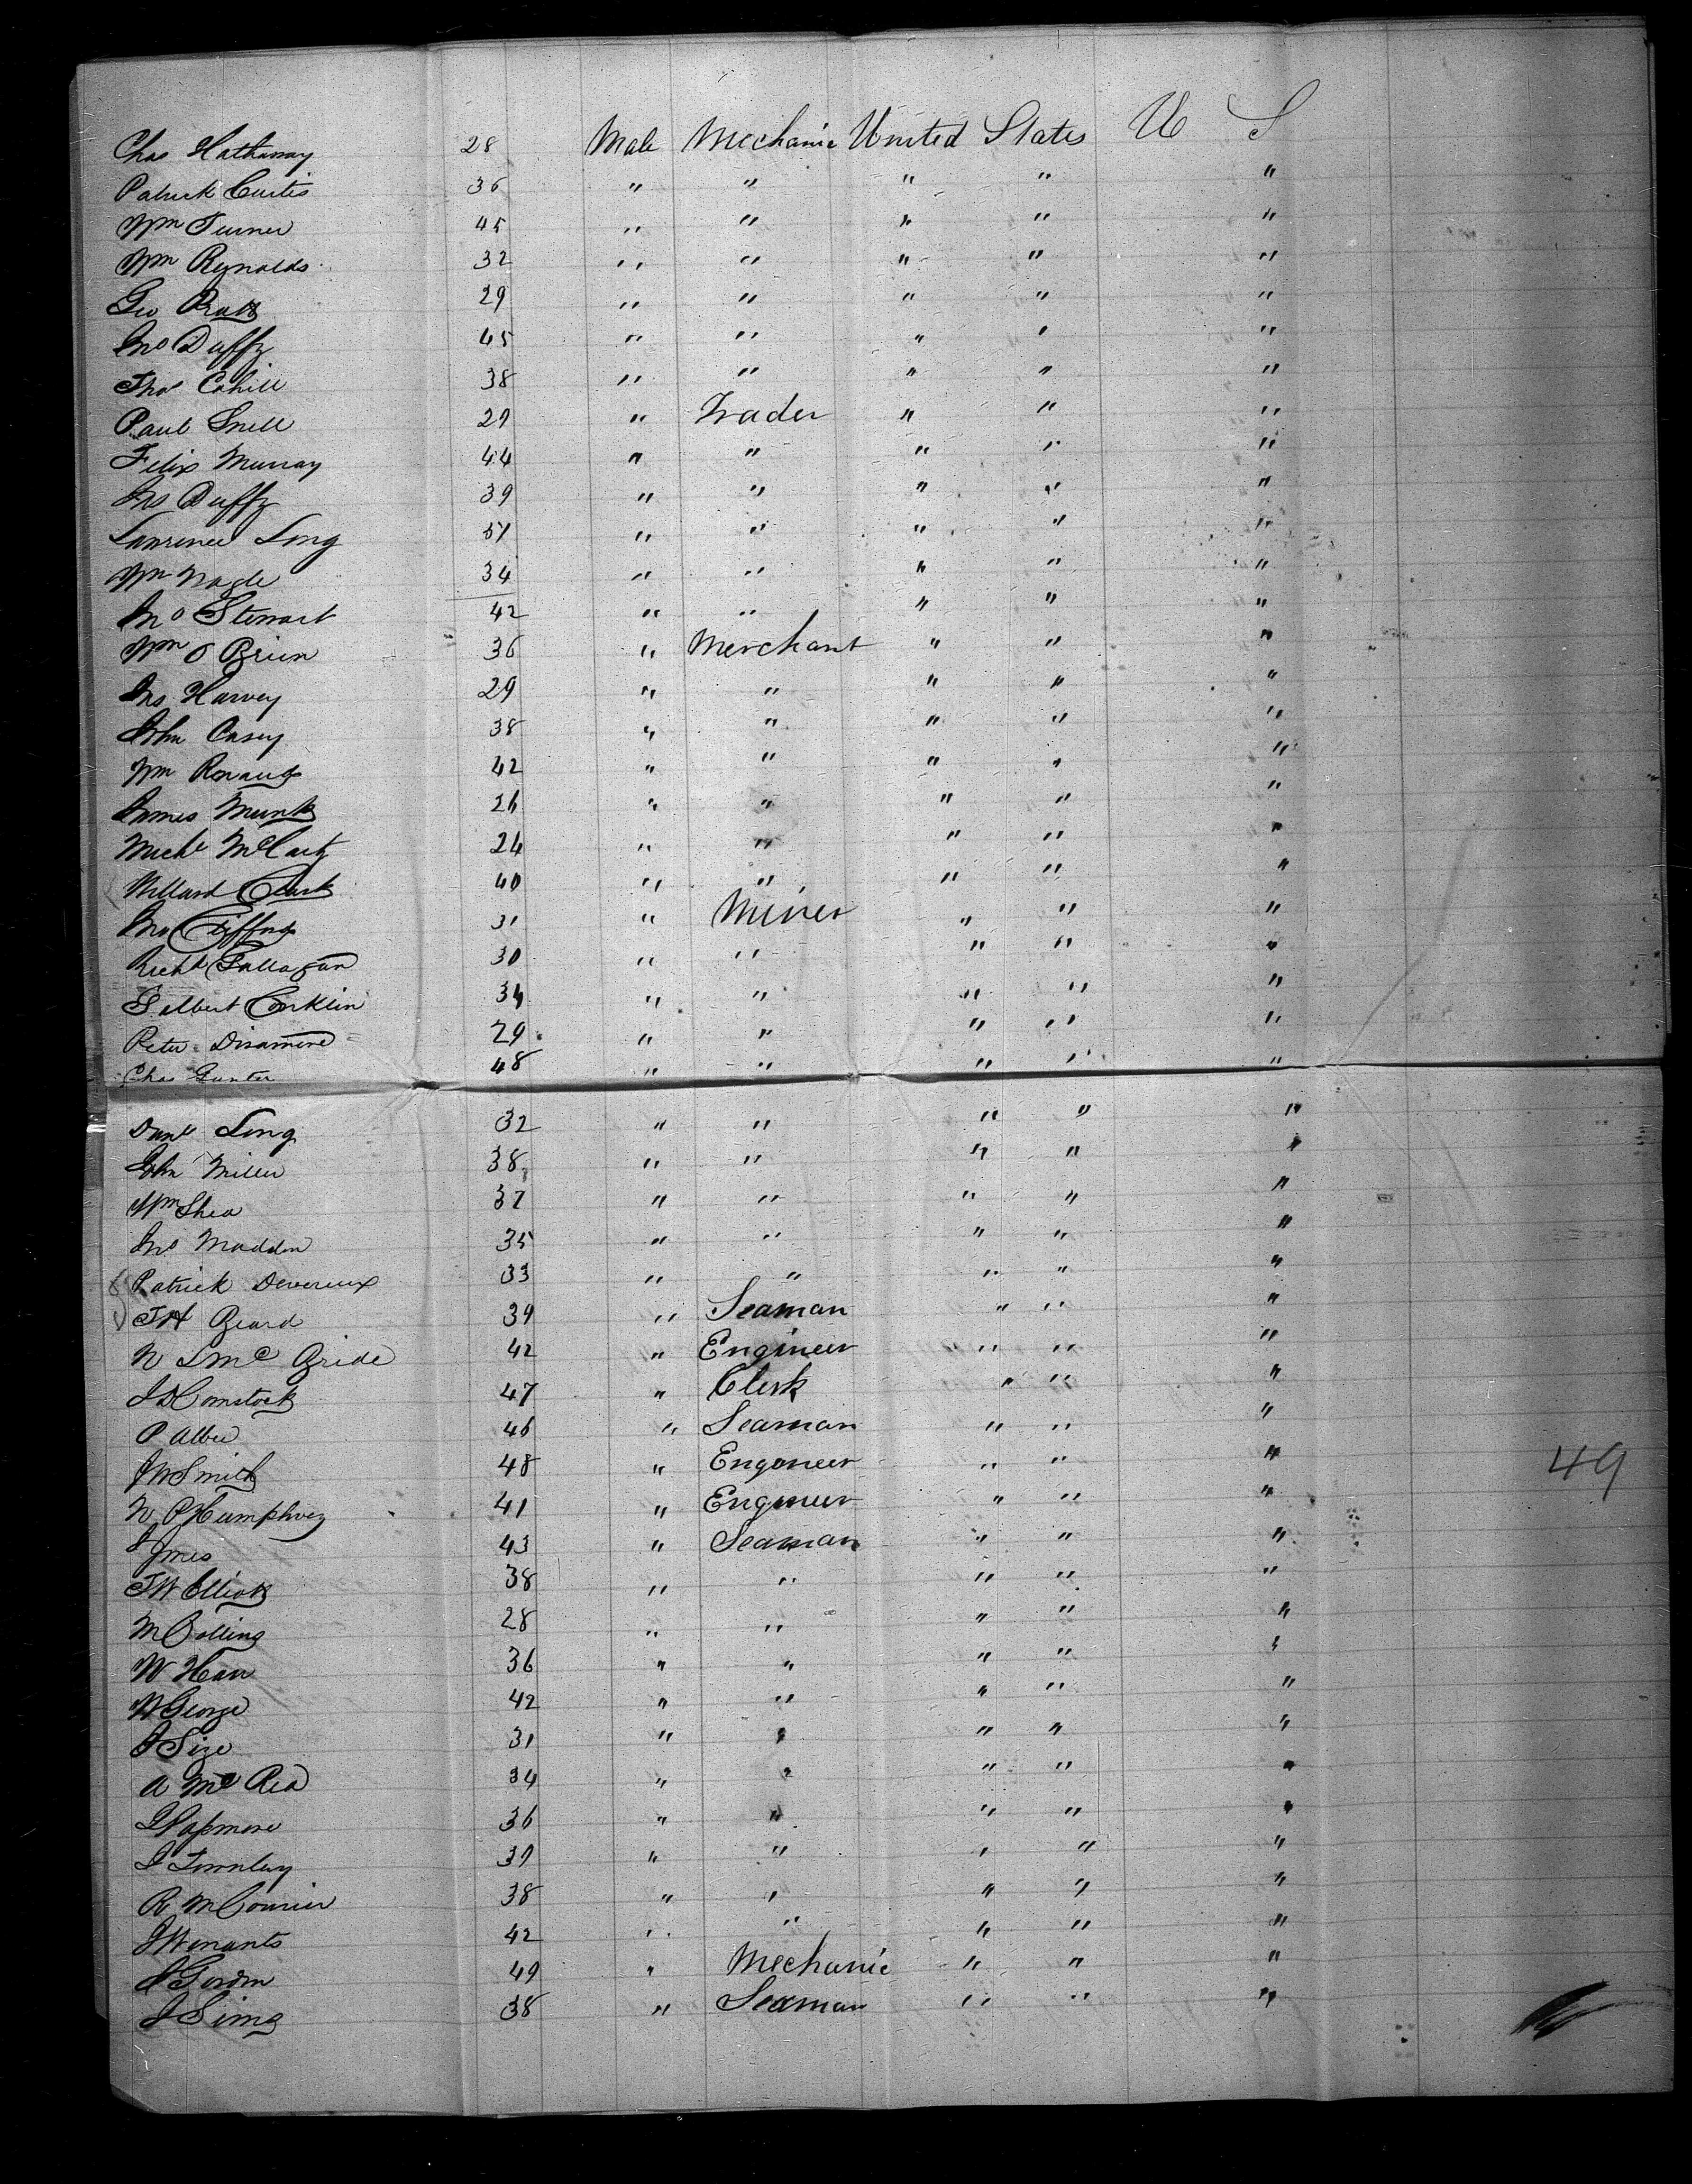 Chas Hathaway 28 Male Mechanic United States U S
Patrick Curtis 36 " " " " "
Wm Turner 45 " " " " "
Wm Reynolds 32 " " " " "
Geo Pratt 29 " " " " "
Jno Duffy 45 " " " " "
Thos Cahill 38 " " " " "
Paul Snell 29 " Trader " " "
Felix Murray 44 " " " " "
Jno Duffy 39 " " " " "
Lawrence Long 51 " " " " "
Wm Nagle 34 " " " " "
Jno Stewart 42 " " " " "
Wm O Brien 36 " Merchant " " "
Jno Harvey 29 " " " " "
John Casey 38 " " " " "
Wm 42 " " " " "
James Munk 26 " " " " "
Michl McCarty 24 " " " " "
Willard Clark 40 " " " " "
Jno Clifford 31 " Miner " " "
Richd 30 " " " " "
Conklin 34 " " " " "
Peter 29 " " " " "
Chas Gunter 48 " " " " "
Danl Long 32 " " " " "
John Miller 38 " " " " "
Wm Shea 37 " " " " "
Jno Madden 35 " " " " "
Patrick Devereux 33 " " " " "
Beard 39 " Seaman " " "
N L Mc Bride 42 " Engineer " " "
J D Comstock 47 " Clerk " " "
P Albee 46 " Seaman " " "
J W Smith 48 " Engoneer " " "
N P Humphrey 41 " Engineer " " "
J Jmes 43 " Seaman " " "
T W Elliott 38 " " " " "
M Colling 28 " " " " "
W 36 " " " " "
W George 42 " " " " "
J Size 31 " " " " "
A Mc Rea 34 " " " " "
36 " " " " "
J Townley 39 " " " " "
R M Courier 38 " " " " "
J Winants 42 " " " " "
J Gordon 49 " Mechanic " " "
J Sims 38 " Seaman " " "
49